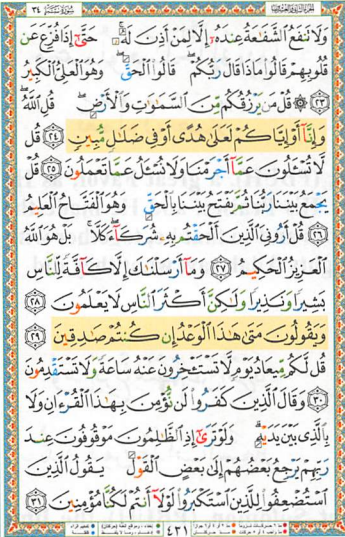 وَلَا تَنفَعُ الشَّفَاعَةُ عِندَهُ إِلَّا لِمَنْ أَذِنَ لَهُ حَتَّىٰ إِذَا فُزِّعَ عَن
قُلُوبِهِمْ قَالُوا مَاذَا قَالَ رَبُّكُمْ قَالُوا الْحَقَّ وَهُوَ الْعَلِيُّ الْكَبِيرُ
٢٣ قُلْ مَن يَرْزُقُكُم مِّنَ السَّمَاوَاتِ وَالْأَرْضِ قُلِ اللَّهُ
وَإِنَّا أَوْ إِيَّاكُمْ لَعَلَىٰ هُدًى أَوْ فِي ضَلَالٍ مُّبِينٍ ٢٤ قُل
لَّا تُسْأَلُونَ عَمَّا أَجْرَمْنَا وَلَا نُسْأَلُ عَمَّا تَعْمَلُونَ ٢٥ قُلْ
يَجْمَعُ بَيْنَنَا رَبُّنَا ثُمَّ يَفْتَحُ بَيْنَنَا بِالْحَقِّ وَهُوَ الْفَتَّاحُ الْعَلِيمُ
٢٦ قُلْ أَرُونِيَ الَّذِينَ أَلْحَقْتُم بِهِ شُرَكَاءَ كَلَّا بَلْ هُوَ اللَّهُ
الْعَزِيزُ الْحَكِيمُ ٢٧ وَمَا أَرْسَلْنَاكَ إِلَّا كَافَّةً لِّلنَّاسِ
بَشِيرًا وَنَذِيرًا وَلَٰكِنَّ أَكْثَرَ النَّاسِ لَا يَعْلَمُونَ ٢٨
وَيَقُولُونَ مَتَىٰ هَٰذَا الْوَعْدُ إِن كُنتُمْ صَادِقِينَ ٢٩
قُل لَّكُم مِّيعَادُ يَوْمٍ لَّا تَسْتَأْخِرُونَ عَنْهُ سَاعَةً وَلَا تَسْتَقْدِمُونَ
٣٠ وَقَالَ الَّذِينَ كَفَرُوا لَن نُّؤْمِنَ بِهَٰذَا الْقُرْآنِ وَلَا
بِالَّذِي بَيْنَ يَدَيْهِ وَلَوْ تَرَىٰ إِذِ الظَّالِمُونَ مَوْقُوفُونَ عِندَ
رَبِّهِمْ يَرْجِعُ بَعْضُهُمْ إِلَىٰ بَعْضٍ الْقَوْلَ يَقُولُ الَّذِينَ
اسْتُضْعِفُوا لِلَّذِينَ اسْتَكْبَرُوا لَوْلَا أَنتُمْ لَكُنَّا مُؤْمِنِينَ ٣١
٤٣١